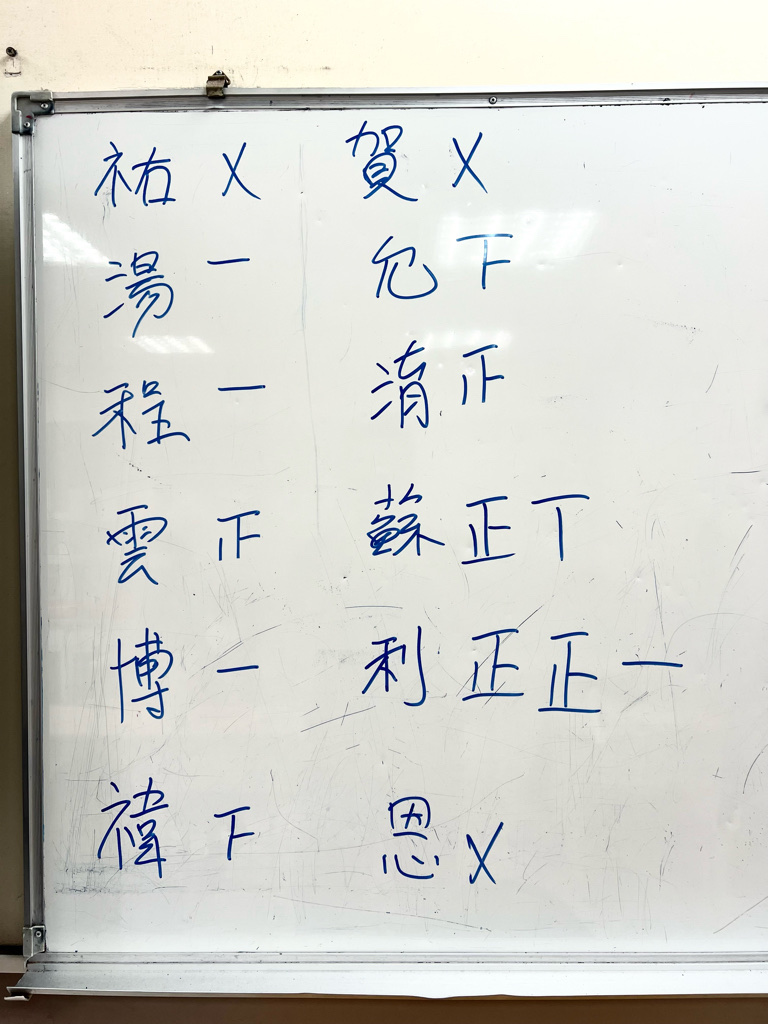 祐 X 賀 X
湯 一 允 下
程 一 淯 正
雲 正 蘇 正丅
博 一 利 正正一
禕 下 恩 X